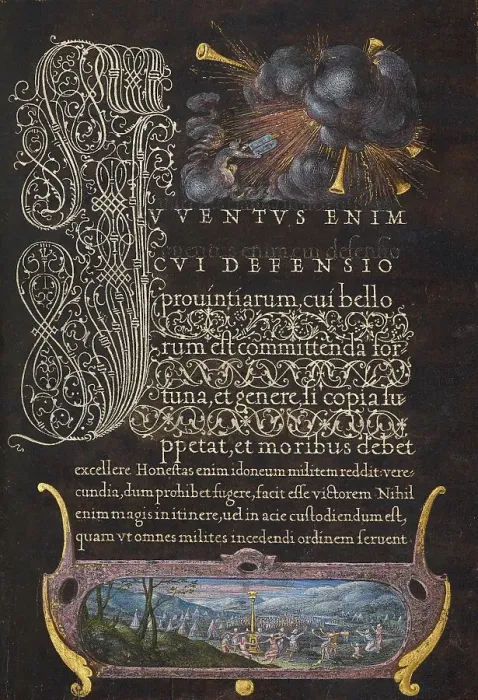 IVVENTVS ENIM
CVI DEFENSIO
prouintiarum, cui bello
rum est committenda for-
tuna, et genere, si copia su
ppetat, et moribus debet
excellere. Honestas enim idoneum militem reddit: vere-
cundia, dum prohibet fugere, facit esse victorem. Nihil
enim magis in itinere, uel in acie custodiendum est,
quam vt omnes milites incedendi ordinem seruent.